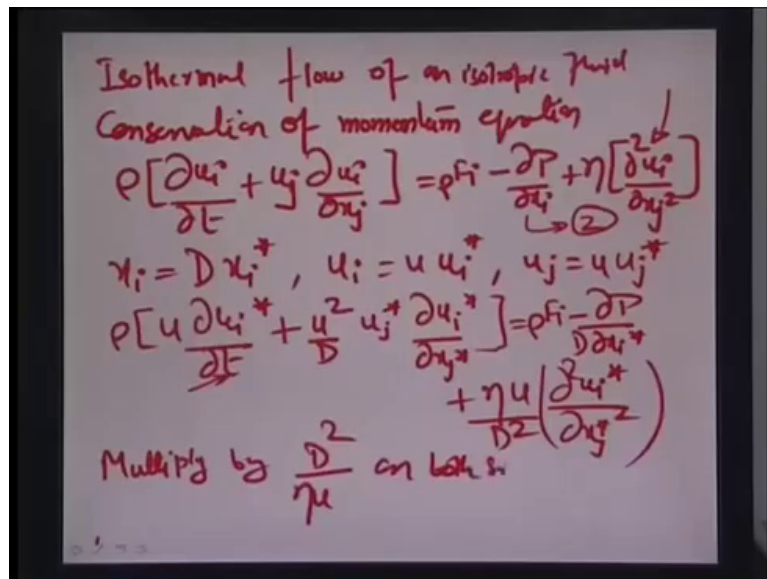 Isothermal flow of an isotropic fluid
Conservation of momentum equation
ρ[∂ui/∂t + uj ∂ui/∂xj] = ρFi - ∂P/∂xi + η[∂²ui/∂xj²]
→ 2
xi = D xi*, ui = u ui*, uj = u uj*
ρ[u ∂ui*/∂t + u²/D uj* ∂ui*/∂xj*] = ρFi - ∂P/D∂xi*
+ ηu/D² (∂²ui*/∂xj²)
Multiply by D²/ηu on both s